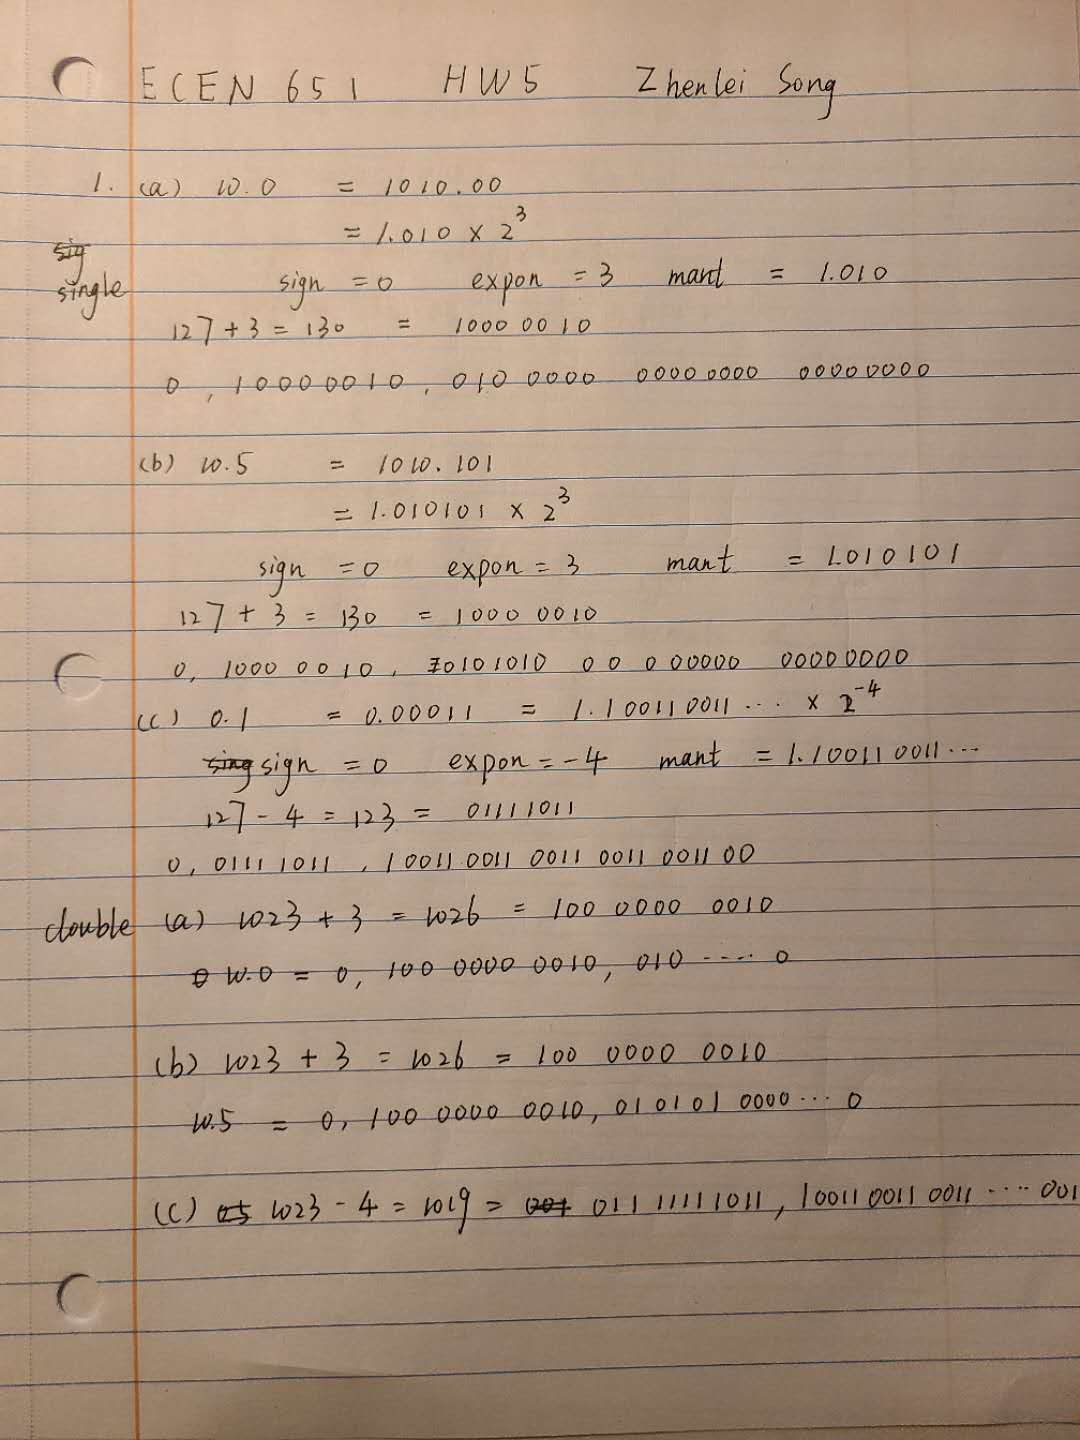 ECEN 651 HW5 Zhenlei Song
1. (a) 10.0 = 1010.00
= 1.010 × 2^3
single sign = 0 expon = 3 mant = 1.010
127 + 3 = 130 = 1000 0010
0, 10000010, 010 0000 0000 0000 0000 0000
(b) 10.5 = 1010.101
= 1.010101 × 2^3
sign = 0 expon = 3 mant = 1.010101
127 + 3 = 130 = 1000 0010
0, 1000 0010, 0101010 00 0 00000 0000 0000
(c) 0.1 = 0.00011 = 1.10011 0011 ... × 2^-4
sign = 0 expon = -4 mant = 1.10011 0011 ...
127 - 4 = 123 = 01111011
0, 0111 1011, 10011 0011 0011 0011 0011 00
double (a) 1023 + 3 = 1026 = 100 0000 0010
10.0 = 0, 100 0000 0010, 010 ..... 0
(b) 1023 + 3 = 1026 = 100 0000 0010
10.5 = 0, 100 0000 0010, 010101 0000 ... 0
(c) 1023 - 4 = 1019 = 011 11111011, 10011 0011 0011 ..... 001